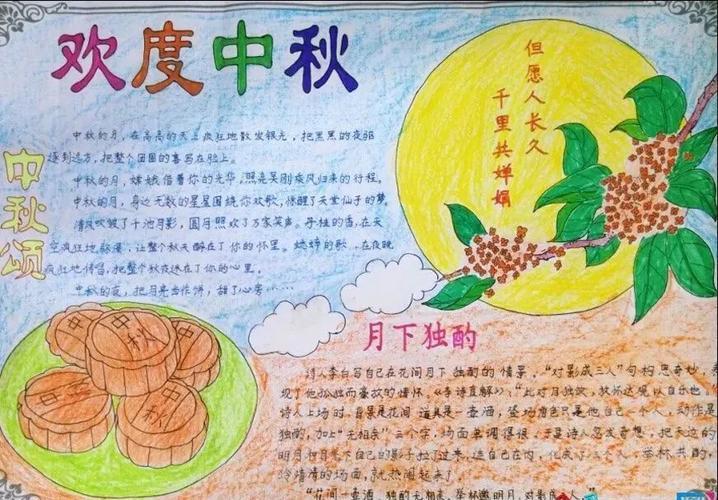 欢度中秋
但愿人长久
千里共婵娟
中秋颂
中秋的月，在高高的天上疯狂地散发银光，把黑黑的夜驱
逐到远方，把整个团圆的喜写在脸上。
中秋的月，嫦娥借着你的光华，照亮吴刚疾风归来的行程。
中秋的月，身边无数的星星围绕你欢歌，惊醒了天堂仙子的梦，
清风吹皱了千池月影，圆月照欢了万家笑声。丹桂的香，在天
空疯狂地弥漫，让整个秋天醉在了你的怀里。蟋蟀的歌，在夜晚
疯狂地传唱，把整个秋夜迷在了你的心里。
中秋的夜，把月亮当作饼，甜了心房……
中秋
中秋
中秋
中秋
月下独酌
诗人李白写自己在花间月下独酌的情景。“对影成三人”句构思奇妙，表
现了他孤独而豪放的情怀。《李诗直解》：“此对月独饮，放怀达观以自乐也。
诗人上场时，背景是花间，道具是一壶酒，登场角色只是他自己一个人，动作是
独酌，加上“无相亲”三个字，场面单调得很。于是诗人忽发奇想，把天边的
明月和月光下自己的影子拉了过来，连自己在内，化成了三个人，举杯共酌，
冷清清的场面，就热闹起来了
“花间一壶酒，独酌无相亲。举杯邀明月，对影成三人。”